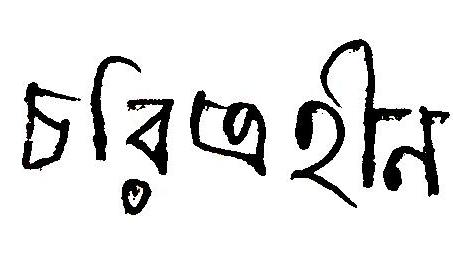 চরিত্রহীন